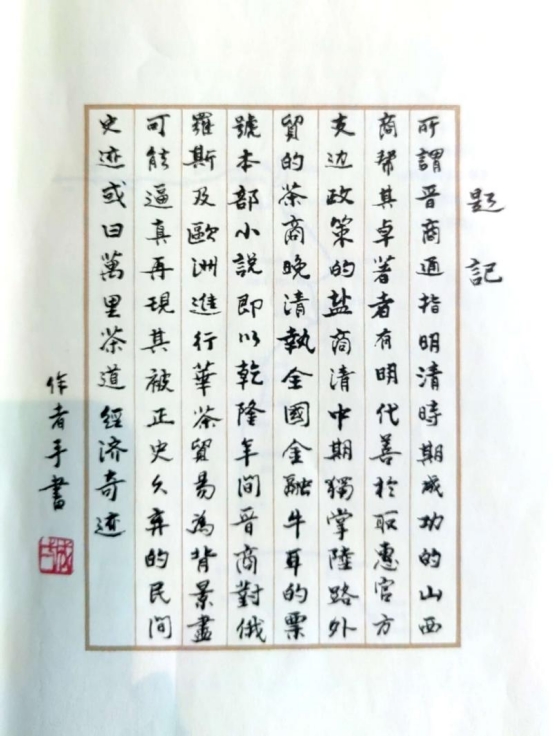 题記
所謂晋商通指明清時期成功的山西
商帮其卓著者有明代善於取惠官方
支边政策的盐商清中期獨掌陸路外
貿的茶商晚清執全國金融牛耳的票
號本部小説即以乾隆年間晋商對俄
羅斯及歐洲進行華茶貿易為背景盡
可能逼真再現其被正史久弃的民間
史迹或曰萬里茶道經济奇迹
作者手書